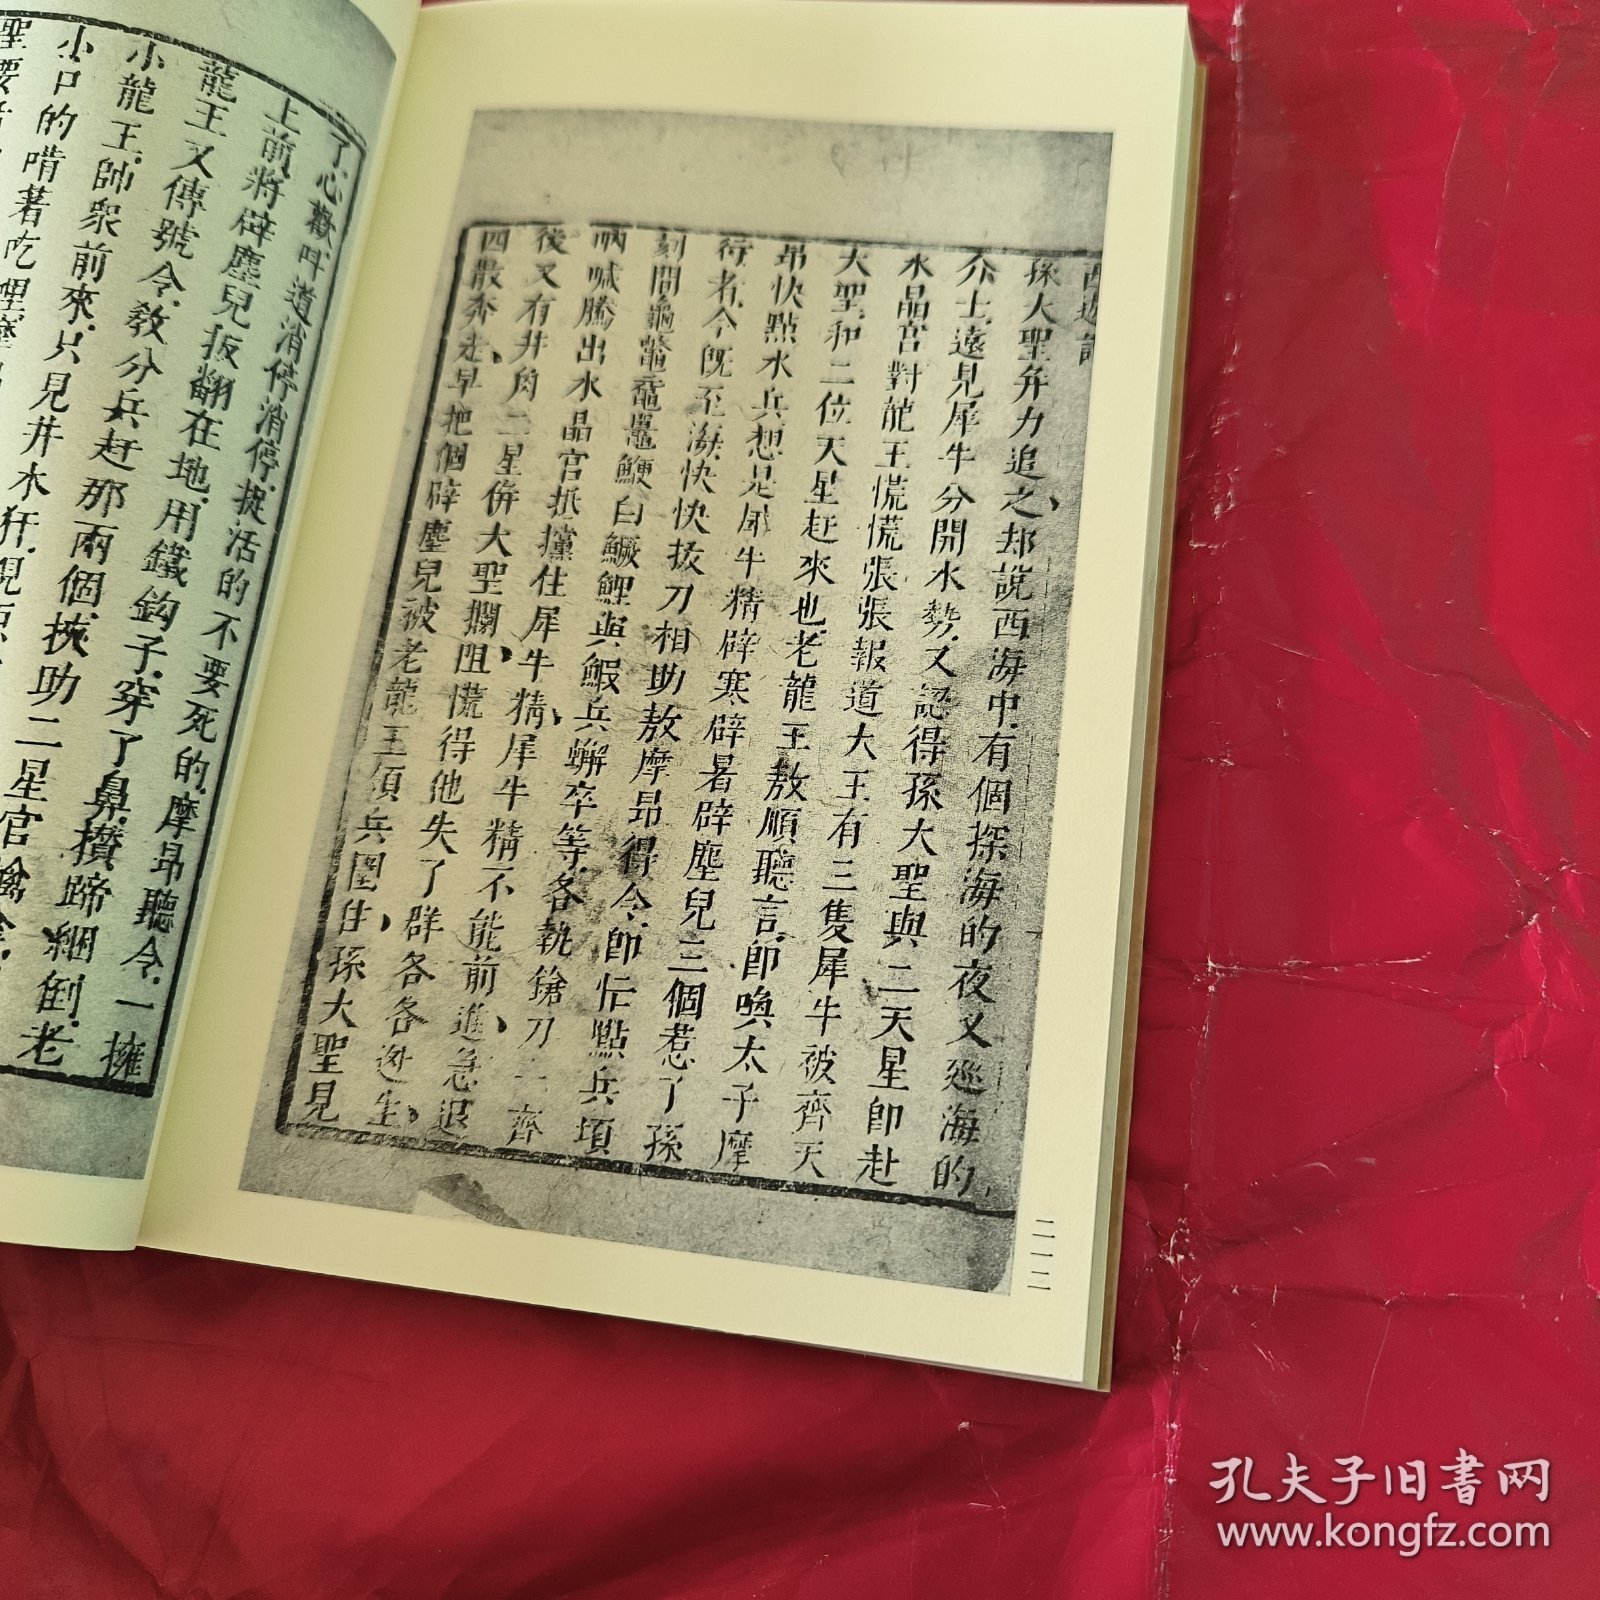 西遊記
孫大聖并力追之、却說西海中、有個探海的夜叉巡海的
介士、遠見犀牛分開水勢、又認得孫大聖與二天星、即赴
水晶宮對龍王慌慌張張報道大王有三隻犀牛被齊天
大聖、和二位天星赶來也、老龍王敖順聽言、即喚太子摩
昻快點水兵想是犀牛精辟寒辟暑辟塵兒三個惹了孫
行者、今既至海快快拔刀相助敖摩昻得令、即忙點兵頃
刻間龜鱉黿鼉鯾白鱖鯉與鰕兵蠏卒等、各執鎗刀一齊
吶喊騰出水晶宮抵攩住犀牛精、犀牛精不能前進、急退
後又有井角二星併大聖攔阻、慌得他失了群各各逃生、
四散奔走、早把個辟塵兒被老龍王領兵圍住、孫大聖見
二一二
了、心歡叫道消停消停、捉活的不要死的、摩昻聽令、一擁
上前將辟塵兒扳翻在地、用鐵鈎子、穿了鼻攢蹄綑倒、老
龍王又傳號令、敎分兵赶那兩個、挾助二星官擒拿
小龍王、帥眾前來、只見井木犴、現原
小口的啃著吃哩、摩
聖要
孔夫子旧书网
www.kongfz.com